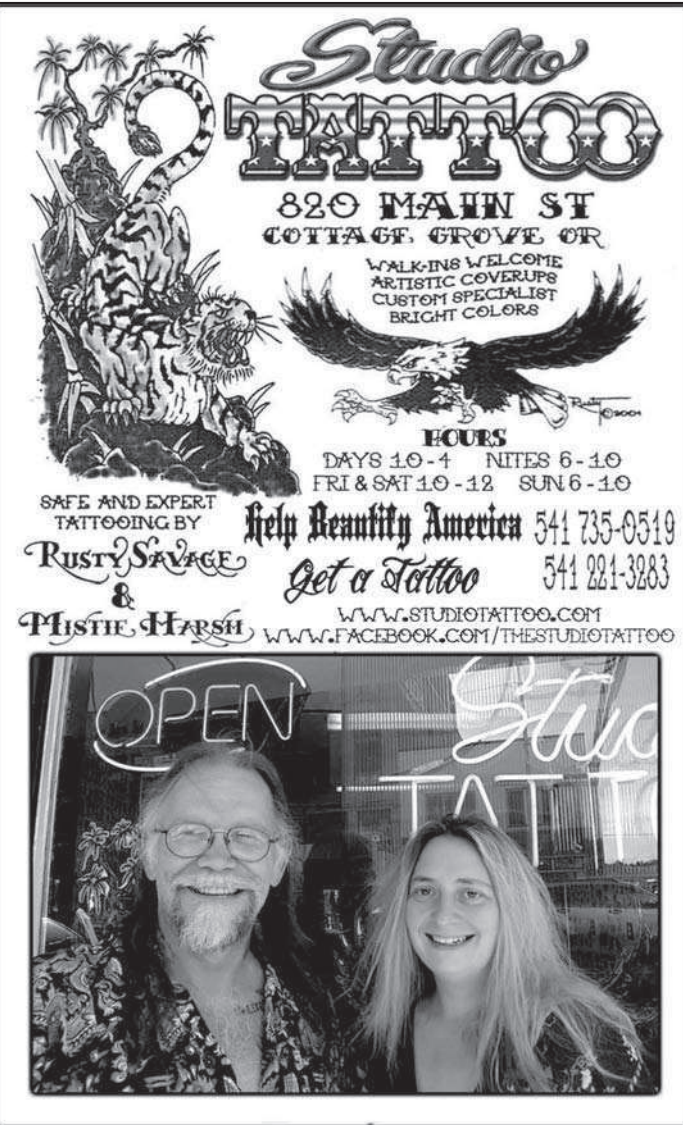 Studio
TATTOO
820 MAIN ST
COTTAGE GROVE OR
WALK-INS WELCOME
ARTISTIC COVERUPS
CUSTOM SPECIALIST
BRIGHT COLORS
Rusty
©2001
HOURS
DAYS 10-4 NITES 6-10
FRI & SAT 10-12 SUN 6-10
SAFE AND EXPERT
TATTOOING BY
RUSTY SAVAGE
&
MISTIE HARSH
Help Beautify America
Get a Tattoo
541 735-0519
541 221-3283
WWW.STUDIOTATTOO.COM
WWW.FACEBOOK.COM/THESTUDIOTATTOO
OPEN
Stud
TATTO